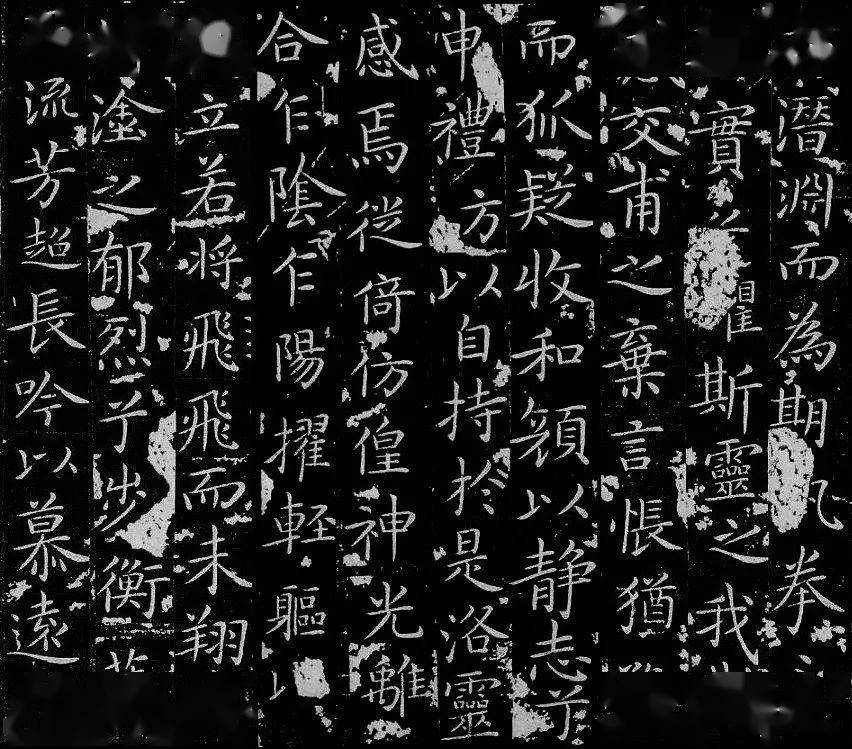 潛淵而為期拳
實斯靈之我
交甫之棄言悵猶
而狐疑收和顏以静志兮
申禮方以自持於是洛靈
感焉徙倚仿偟神光離
合乍陰乍陽擢軽軀以
立若将飛飛而未翔
塗之郁烈乎步衡
流芳超長吟以慕遠